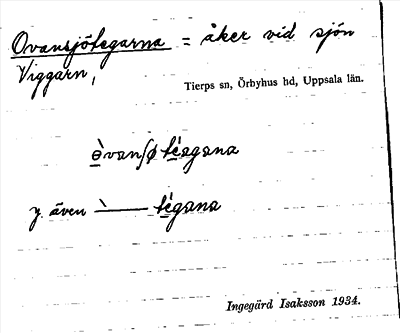 Ovansjötegarna = åker vid sjön
Viggarn,
Tierps sn, Örbyhus hd, Uppsala län.
ɵ̀vanʃø té̱agɘna
y. även ̀ —— té̱gɘna
Ingegärd Isaksson 1934.